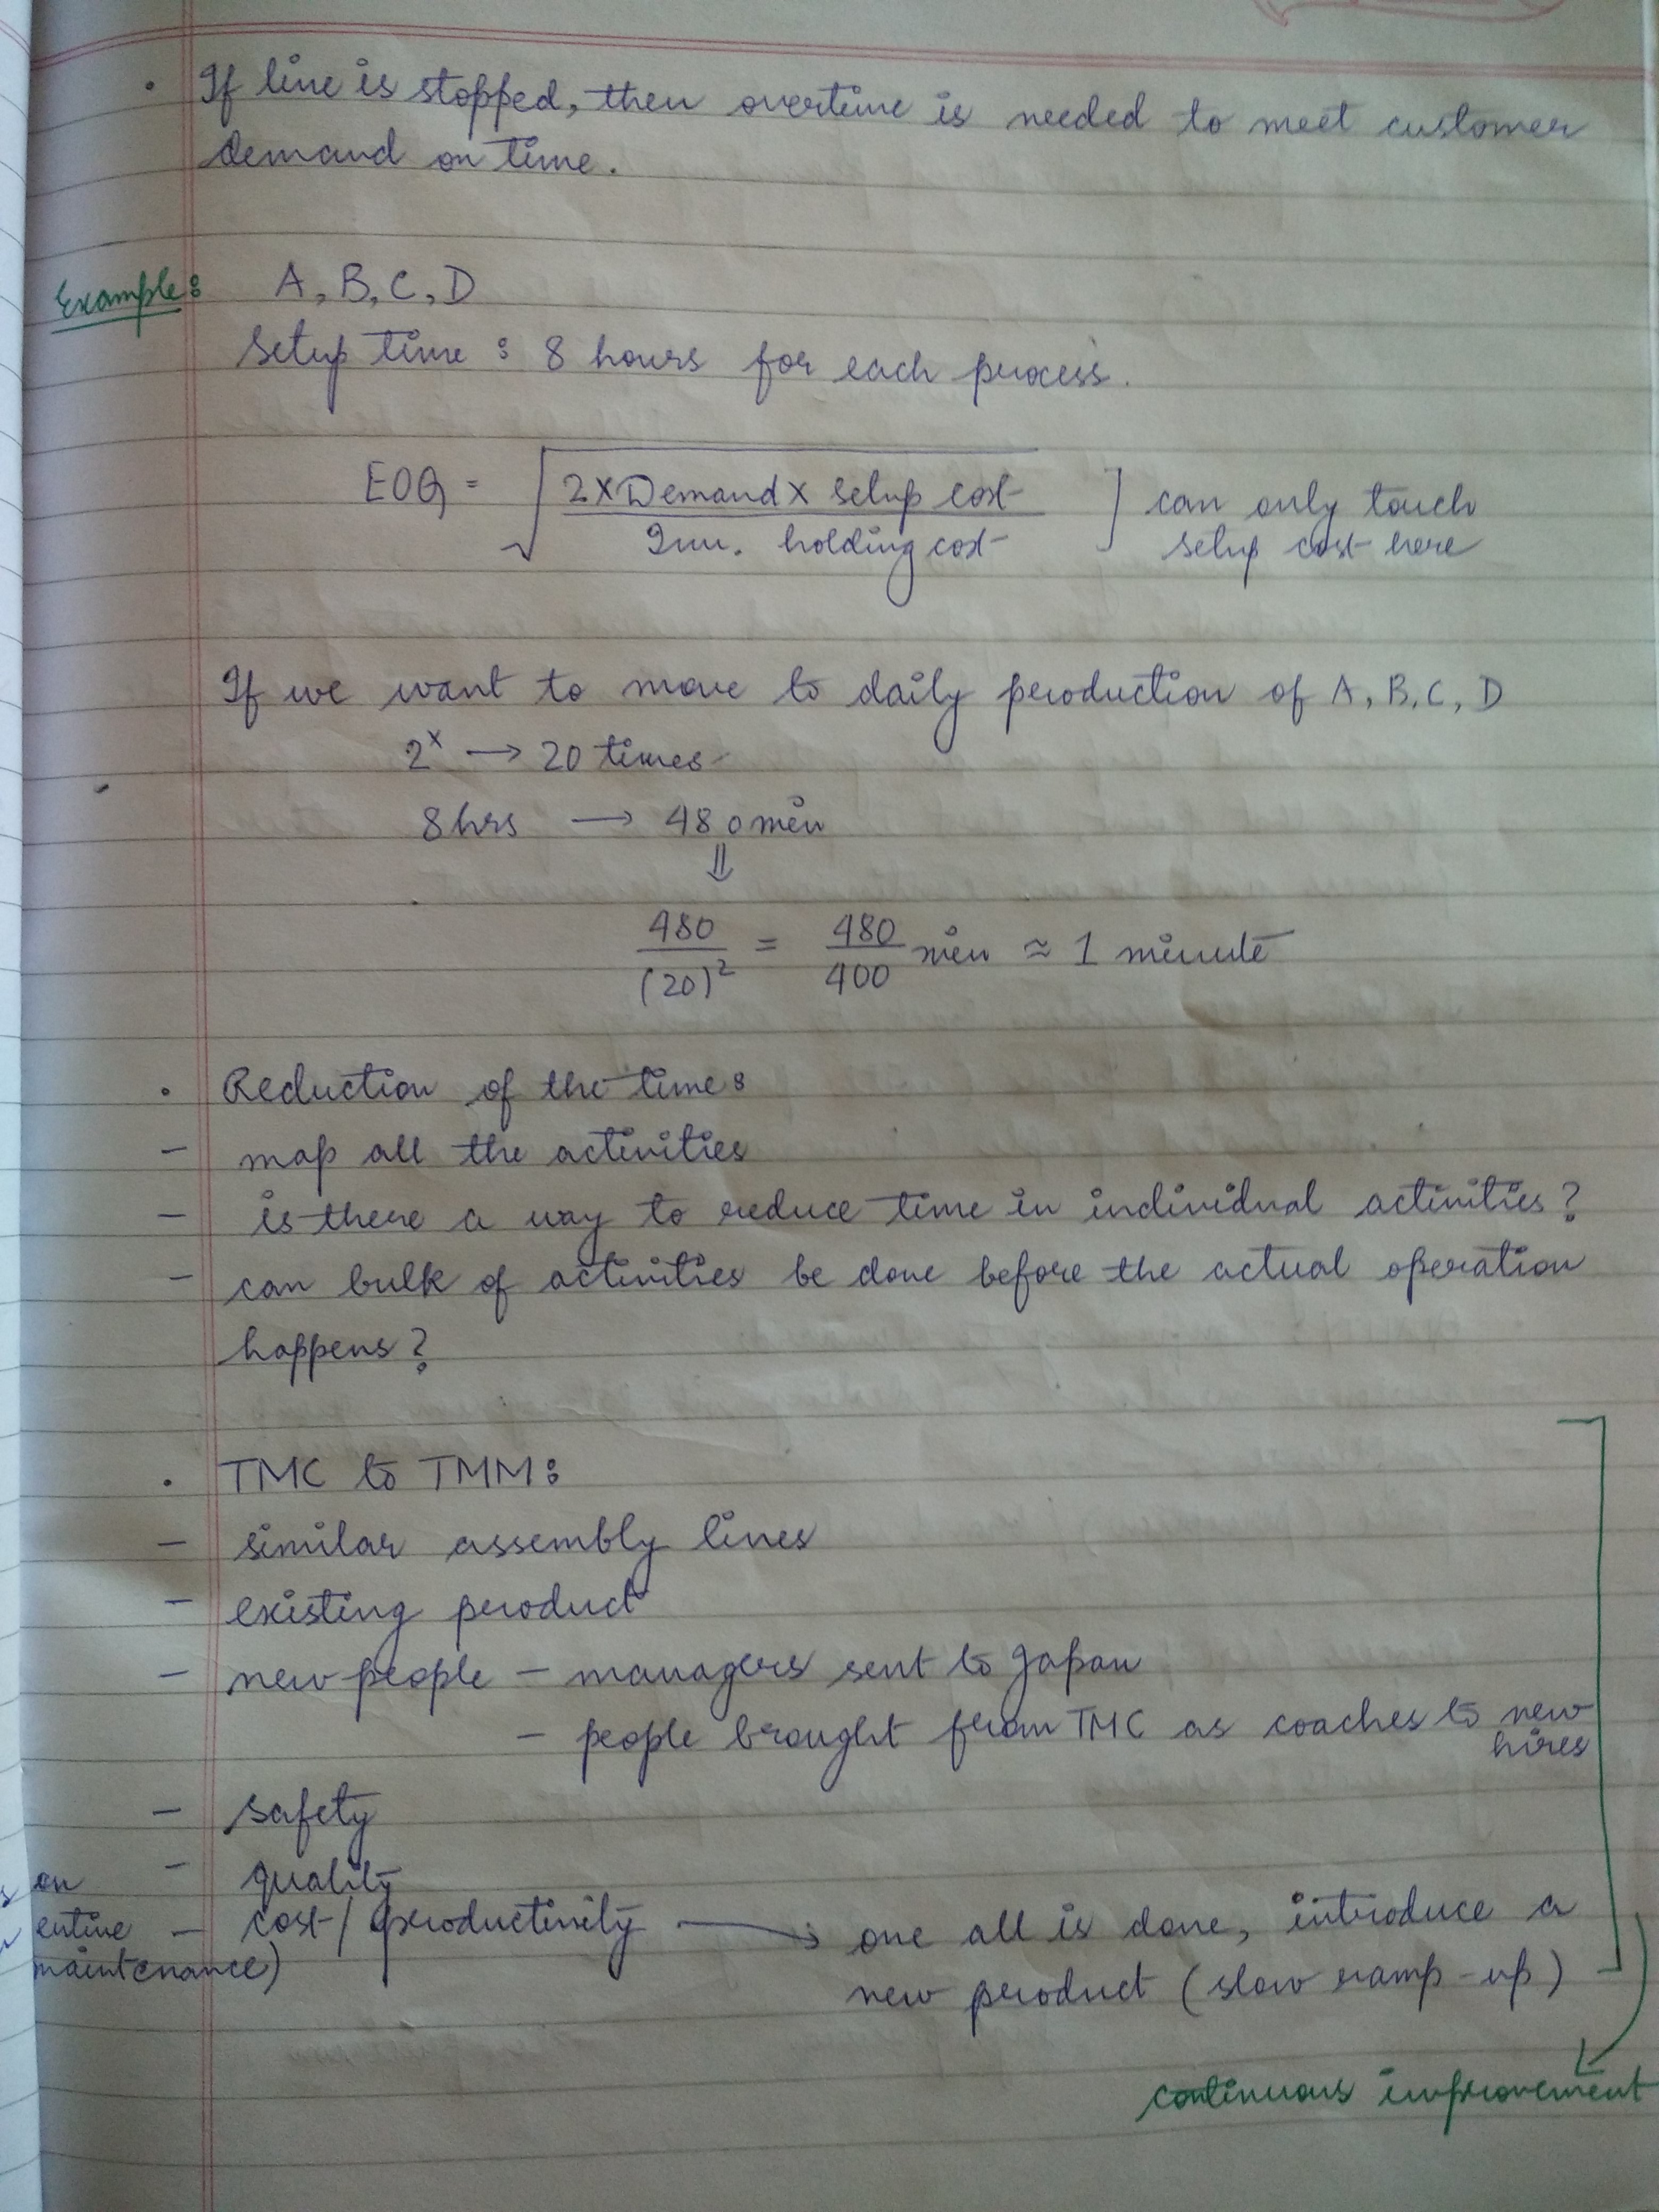 • If line is stopped, then overtime is needed to meet customer
demand on time.
Example: A, B, C, D
Setup time : 8 hours for each process.
EOQ = √ 2 x Demand x setup cost / Inv. holding cost ] can only touch
setup cost here
If we want to move to daily production of A, B, C, D
2x → 20 times
8hrs → 480 min
⇓
480/(20)² = 480/400 min ≈ 1 minute
• Reduction of the time:
— map all the activities
— is there a way to reduce time in individual activities?
— can bulk of activities be done before the actual operation
happens?
• TMC to TMM:
— similar assembly lines
— existing product
— new people — managers sent to Japan
— people brought from TMC as coaches to new
hires
— safety
— quality
— cost/productivity → one all is done, introduce a
new product (slow ramp-up)
continuous improvement
on
entire
maintenance)